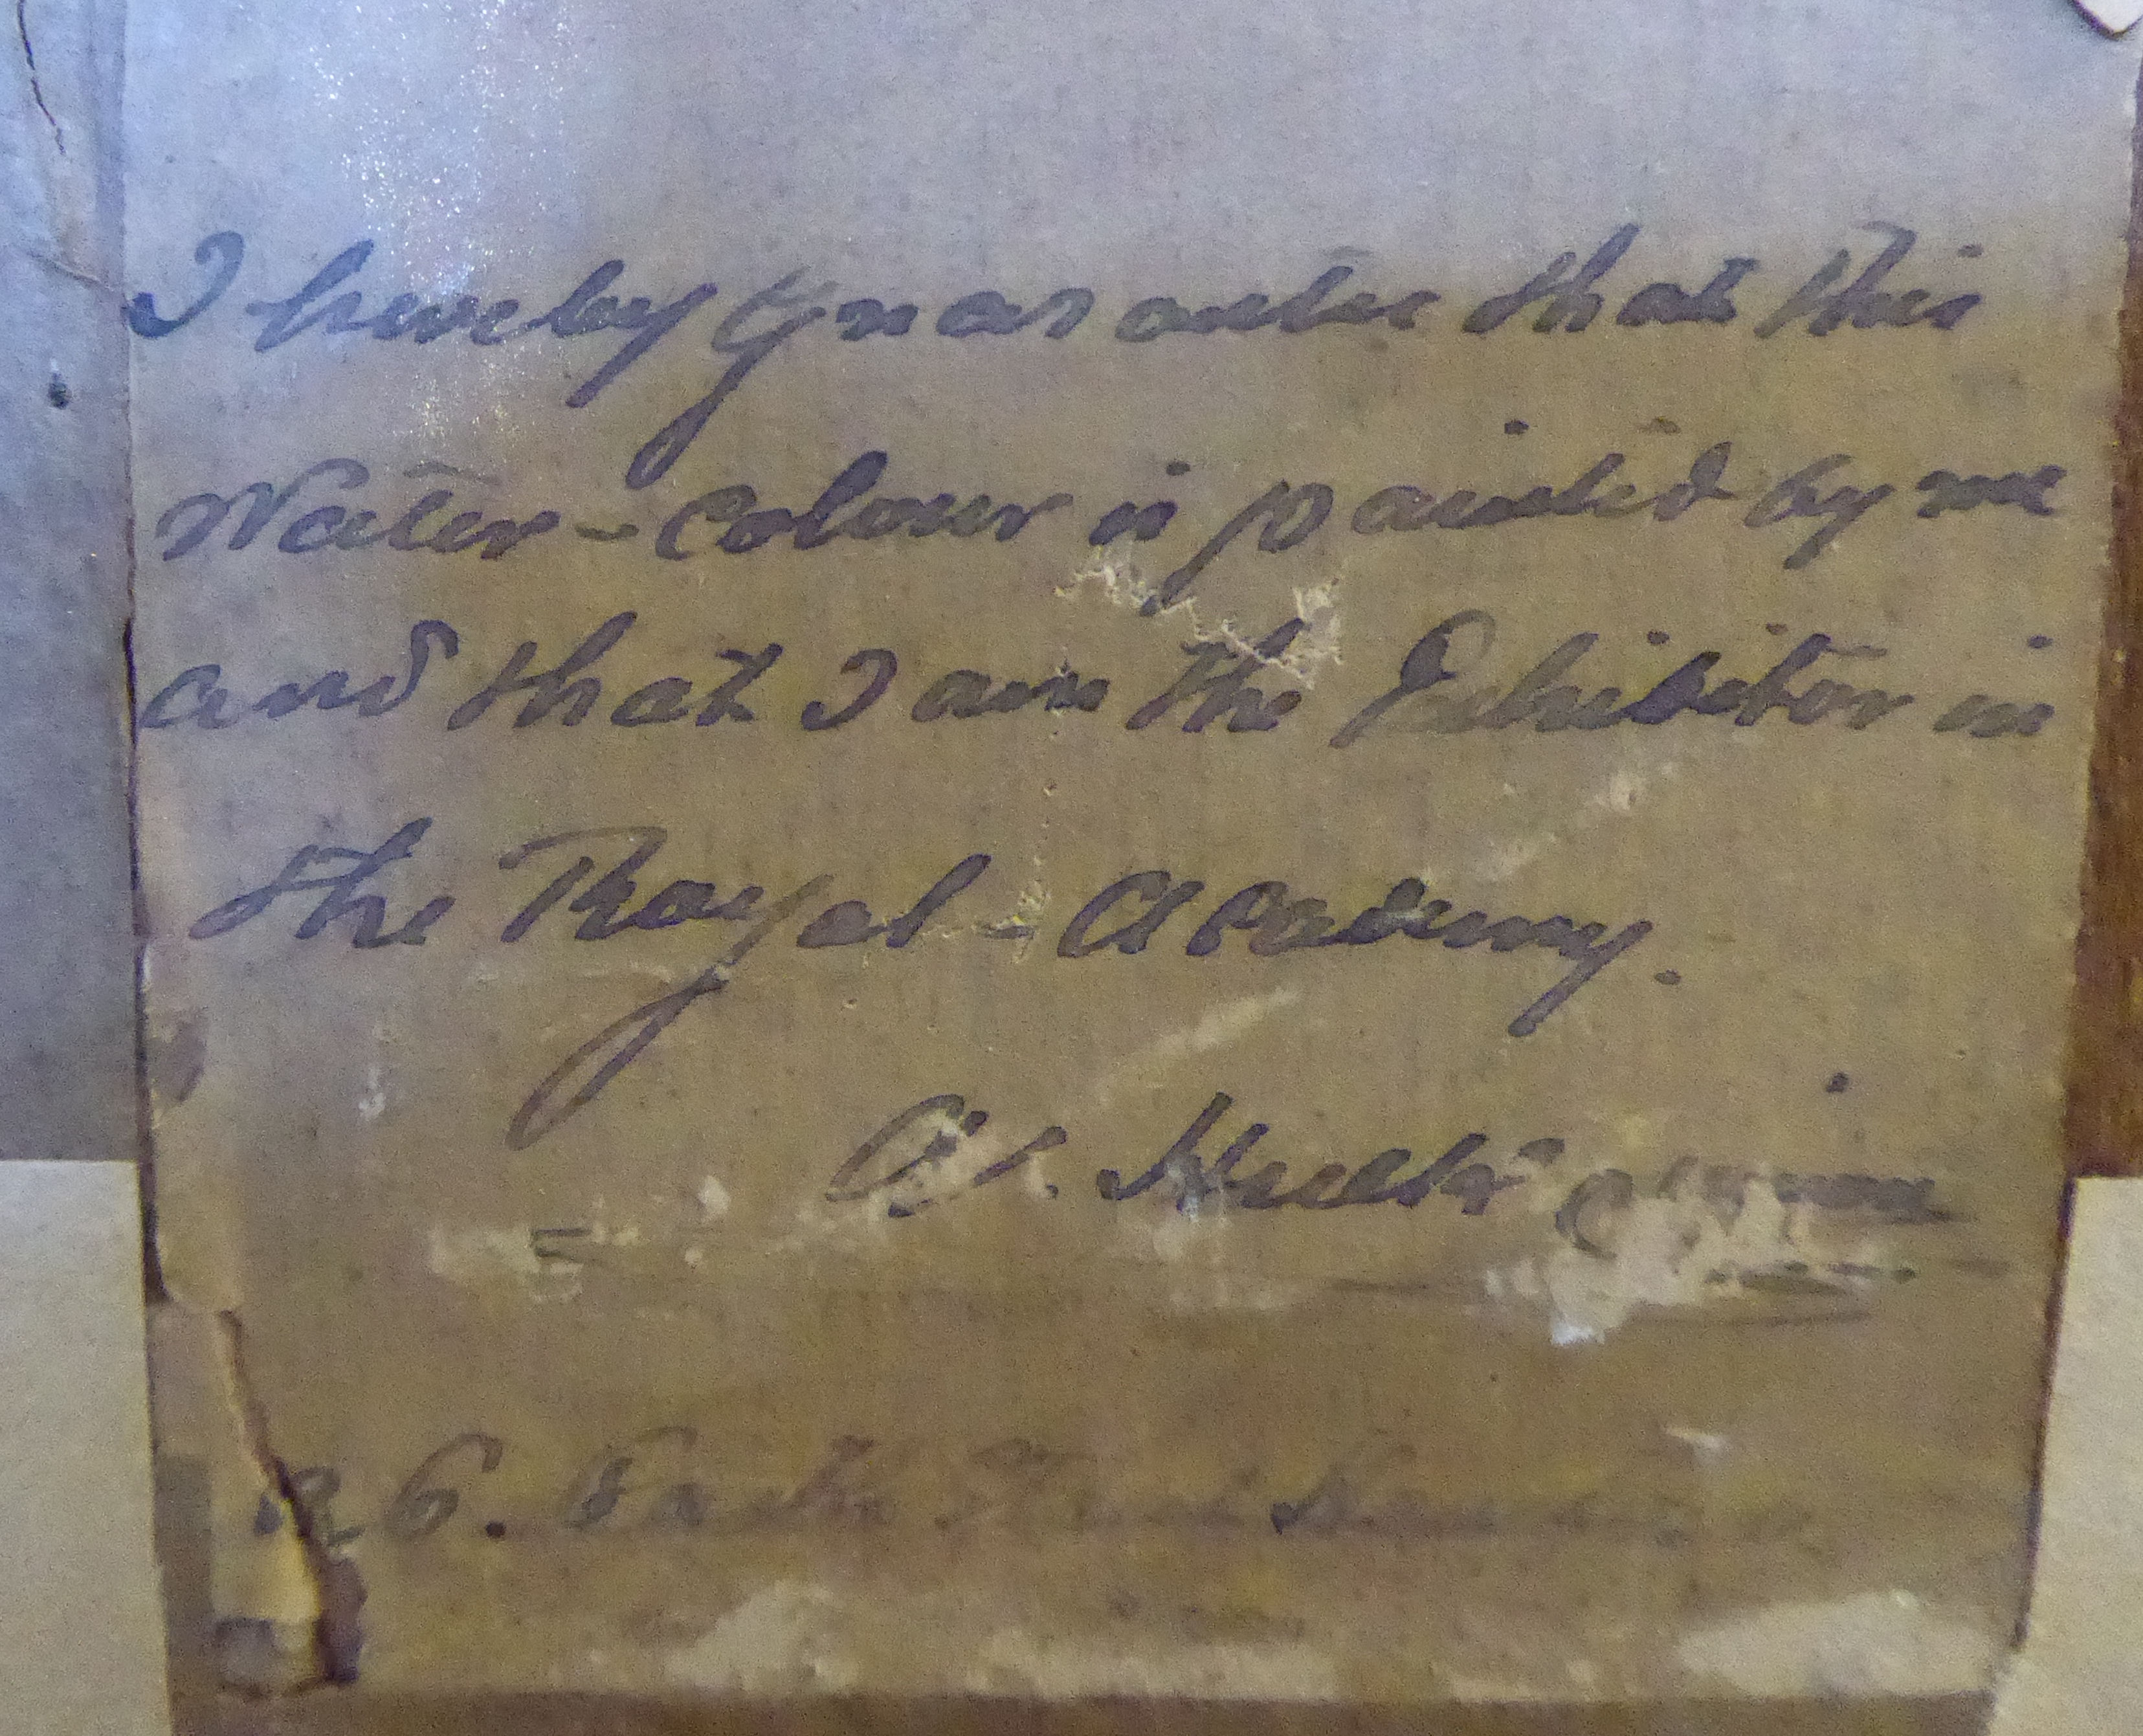 I hereby Guarantee that this
Water-Colour is painted by me
and that I am the Exhibitor in
the Royal-Academy.
26.